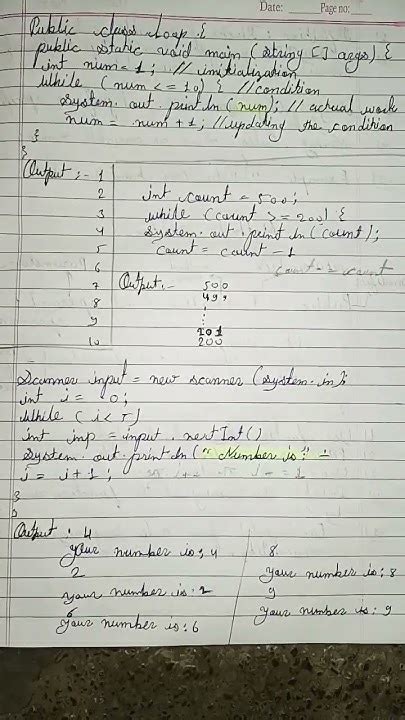 Date: Page no:
Public class Loop {
public static void main (string [] args) {
int num = 1 ; // initialization
while (num <= 10) { // condition
system. out. println (num); // actual work
num = num + 1; // updating the condition
}
}
Output :- 1
2
3
4
5
6
7
8
9
10
int count = 500;
while (count >= 200) {
system. out. println (count);
count = count - 1
Output :- 500
499
201
200
Scanner input = new scanner (system. in);
int i = 0;
while (i < 5)
int inp = input . nextInt()
system. out. println ("Number is:" 
i = i + 1 ;
}
}
Output : 4
your number is; 4
2
your number is: 2
6
your number is: 6
8
your number is; 8
9
your number is: 9